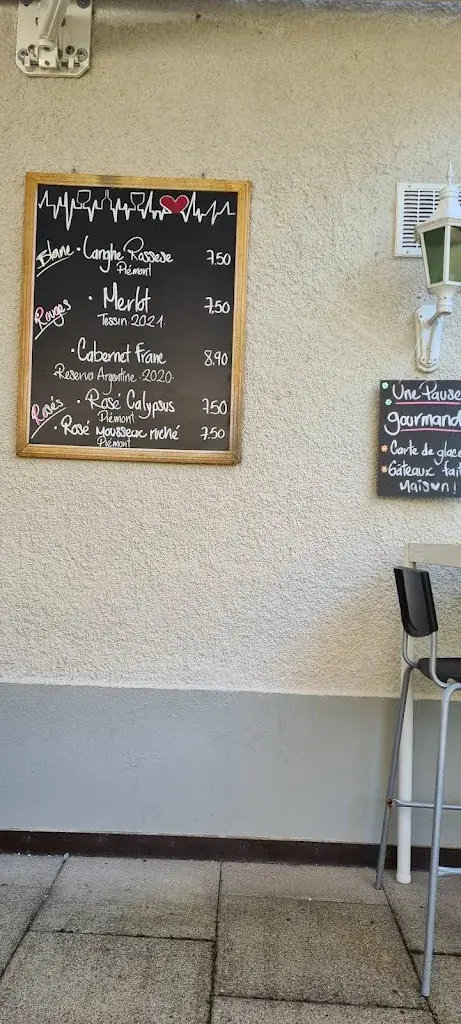 Blanc • Langhe Rassese 7.50
Piémont
Rouges • Merlot 7,50
Tessin 2021.
• Cabernet Franc 8,90
Reserva Argentine 2020.
Rosés • Rosé Calypsus 7,50
Piémont
• Rosé mousseux ruché 7.50
Piémont
Une Pause
gourmand
• Carte de glace
• Gâteaux fait
maison!